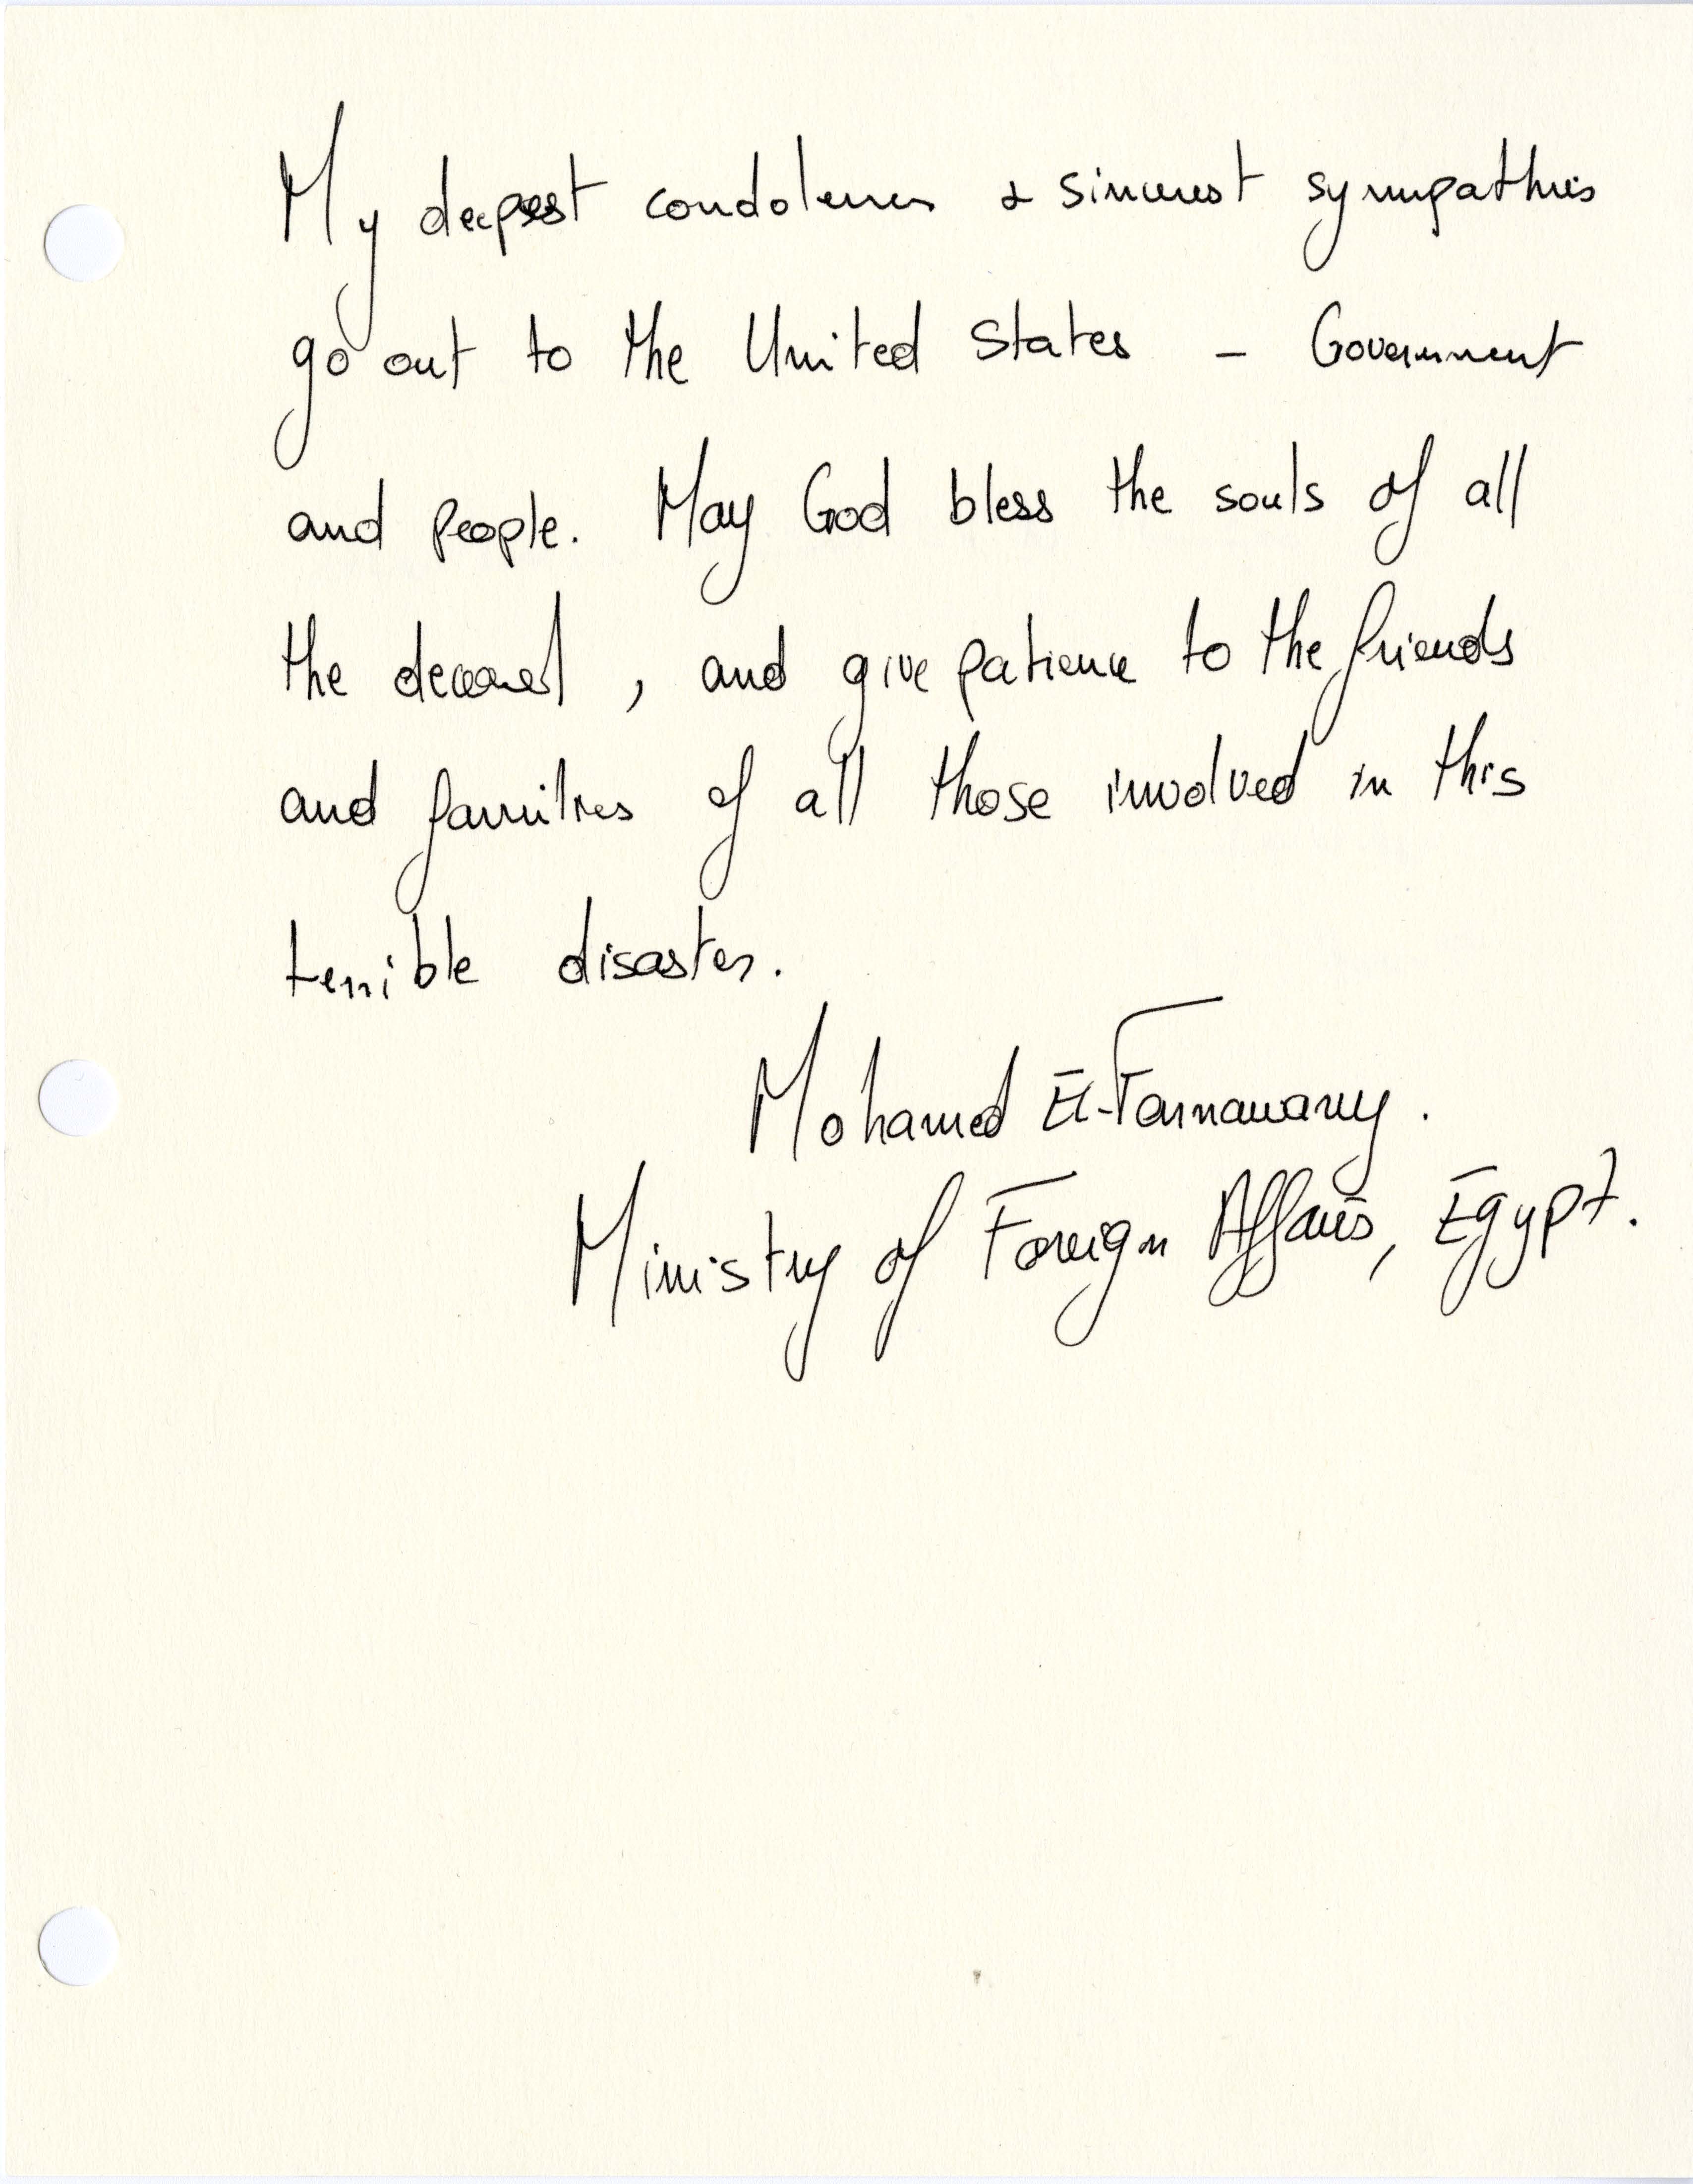 My deepest condolences & sincerest sympathies
go out to the United States - Government
and people. May God bless the souls of all
the deceased, and give patience to the friends
and families of all those involved in this
terrible disaster.
Mohamed
Ministry of Foreign Affairs, Egypt.